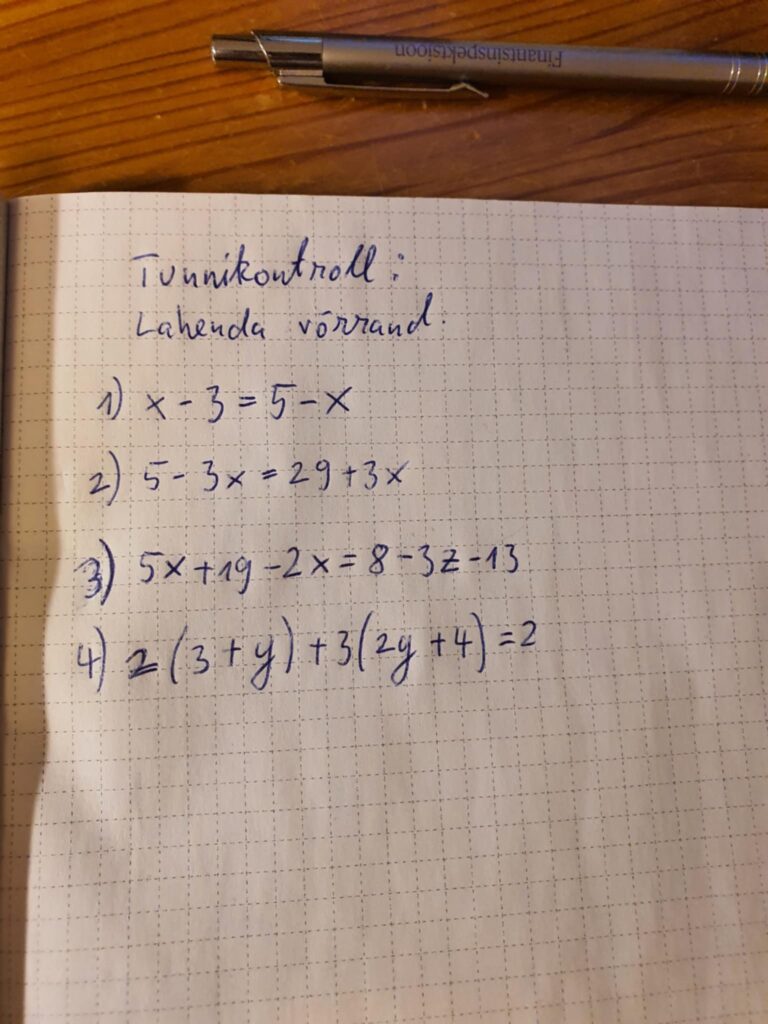 Finantsinspektsioon
Tunnikontroll:
Lahenda võrrand.
1) x - 3 = 5 - x
2) 5 - 3x = 29 + 3x
3) 5x + 19 - 2x = 8 - 3z - 13
4) 2(3 + y) + 3(2y + 4) = 2